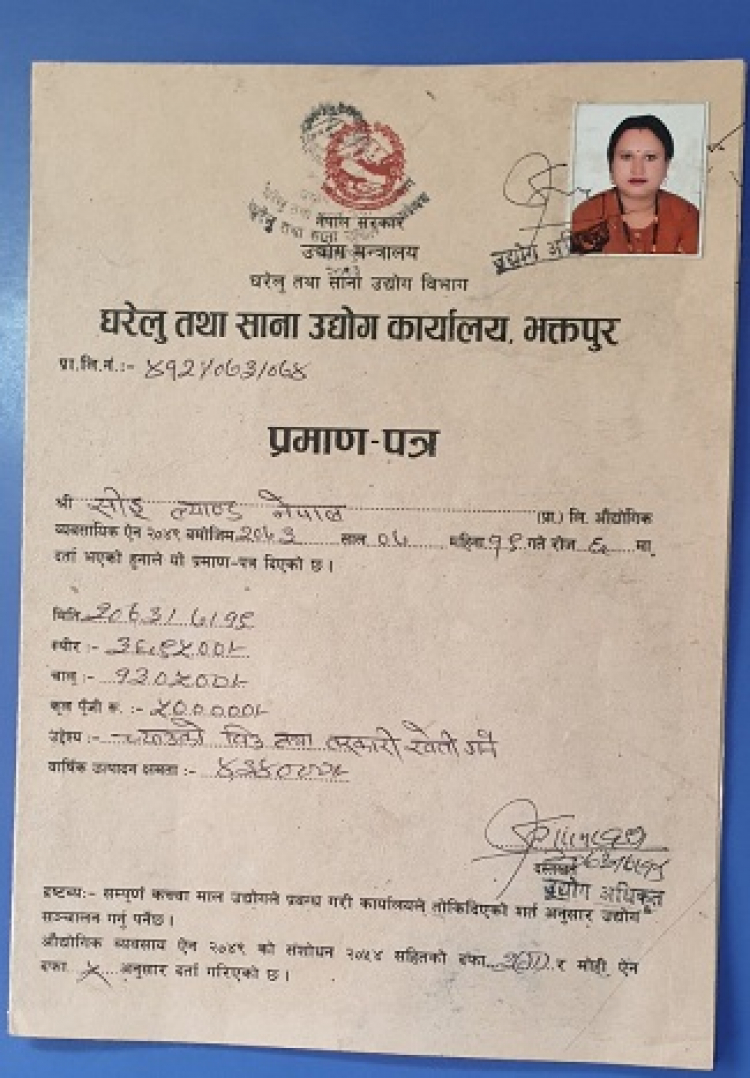 नेपाल सरकार
उद्योग मन्त्रालय
घरेलु तथा साना उद्योग विभाग
उद्योग अधिकृत
घरेलु तथा साना उद्योग कार्यालय, भक्तपुर
प्रा.लि.नं.:- ४१२/०६३/०६४
प्रमाण-पत्र
श्री सोइ ल्याण्ड नेपाल (प्रा.) लि. औद्योगिक
व्यवसायिक ऐन २०४९ बमोजिम २०६३ साल महिना १९ गते रोज ६ मा
दर्ता भएको हुनाले यो प्रमाण-पत्र दिइएको छ ।
मिति २०६३।
स्थीर :- ३६९५००।-
चालु :- १३०५००।-
कूल पूँजी रु. :- ५०००००।-
उद्देश्य :- च्याउको विउ तथा तरकारी खेती गर्ने
वार्षिक उत्पादन क्षमता :-
दस्तखत
उद्योग अधिकृत
द्रष्टव्य:- सम्पूर्ण कच्चा माल उद्योगले प्रवन्ध गरी कार्यालयले तोकिदिएको शर्त अनुसार उद्योग
सञ्चालन गर्नु पर्नेछ ।
औद्योगिक व्यवसाय ऐन २०४९ को संशोधन २०५४ सहितको दफा र सोही ऐन
दफा अनुसार दर्ता गरिएको छ ।